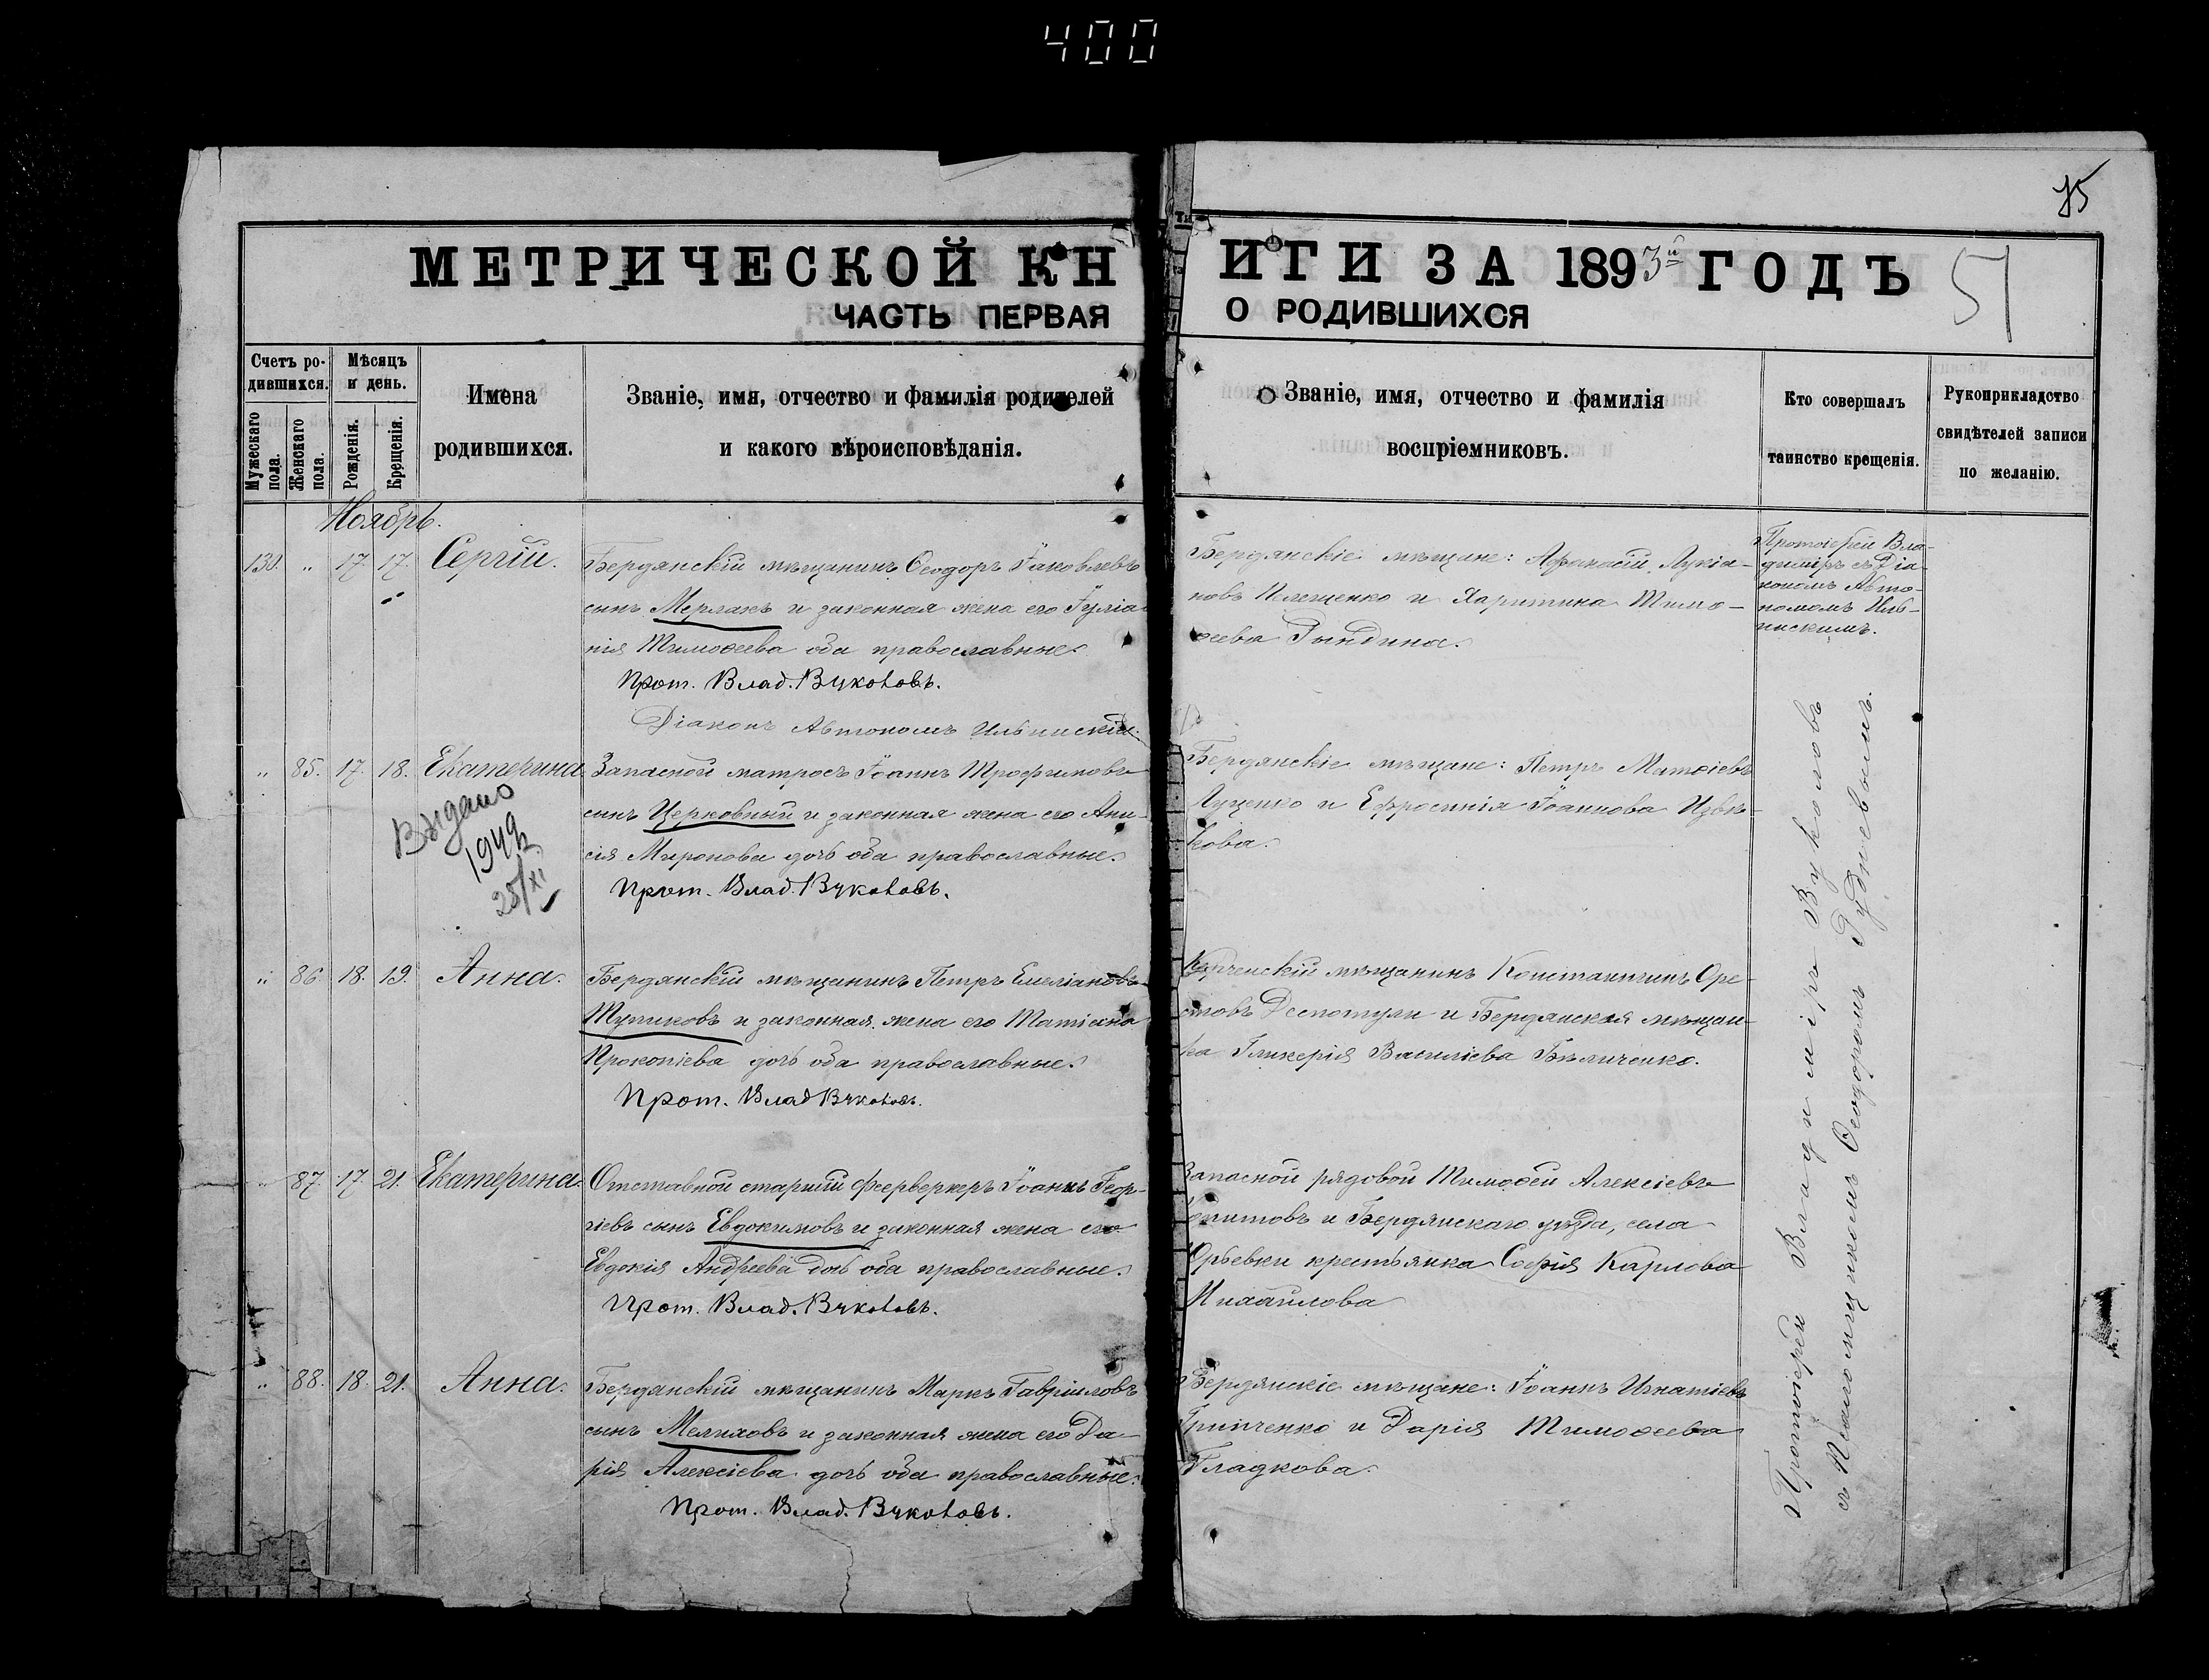 400
85
МЕТРИЧЕСКОЙ КНИГИ ЗА 1893й ГОДЪ
51
ЧАСТЬ ПЕРВАЯ О РОДИВШИХСЯ
Счетъ родившихся.
Мужескаго пола.
Женскаго пола.
Мѣсяцъ и день.
Рожденія.
Крещенія.
Имена родившихся.
Званіе, имя, отчество и фамилія родителей
и какого вѣроисповѣданія.
Званіе, имя, отчество и фамилія
воспріемниковъ.
Кто совершалъ
таинство крещенія.
Рукоприкладство
свидѣтелей записи
по желанію.
Ноябрь.
130. " 17. 17. Сергій.
Бердянскій мѣщанинъ Ѳеодоръ Іаковлевъ
сынъ Мерлакъ и законная жена его Іуліа-
нія Тимоѳеева оба православные.
Прот. Влад. Вуколовъ.
Діаконъ Автономъ Ильинскій.
Бердянскіе мѣщане: Аѳанасій Лукіа-
новъ Плещенко и Харитина Тимо-
ѳеева Рындина.
Протоіерей Вла-
димиръ съ Діа-
кономъ Авто-
номомъ Иль-
инскимъ.
" 85. 17. 18. Екатерина
Выдано
1949
25/XI
Запасной матросъ Іоаннъ Трофимовъ
сынъ Церковный и законная жена его Ани-
сія Миронова дочь оба православные.
Прот. Влад. Вуколовъ.
Бердянскіе мѣщане: Петръ Матѳіевъ
Луценко и Ефросинія Іоаннова Извѣ-
кова.
" 86. 18. 19. Анна.
Бердянскій мѣщанинъ Петръ Емеліановъ
Тупиковъ и законная жена его Татіана
Прокопіева дочь оба православные.
Прот. Влад Вуколовъ.
Керченскій мѣщанинъ Константинъ Оре-
стовъ Деспотули и Бердянская мѣщан-
ка Гликерія Василіева Бѣличенко.
" 87. 17. 21. Екатерина.
Отставной старшій фейерверкеръ Іоаннъ Геор-
гіевъ сынъ Евдокимовъ и законная жена его
Евдокія Андреева дочь оба православные.
Прот. Влад. Вуколовъ.
Запасной рядовой Тимоѳей Алексіевъ
Копитовъ и Бердянскаго уѣзда, села
Юрьевки крестьянка Софія Карлова
Михайлова
" 88. 18. 21. Анна.
Бердянскій мѣщанинъ Маркъ Гавріиловъ
сынъ Мелиховъ и законная жена его Да-
рія Алексіева дочь оба православные.
Прот. Влад. Вуколовъ.
Бердянскіе мѣщане: Іоаннъ Игнатіевъ
Гринченко и Дарія Тимоѳеева
Гладкова.
Протоіерей Владиміръ Вуколовъ
съ Псаломщикомъ Ѳеодоромъ Рудневымъ.